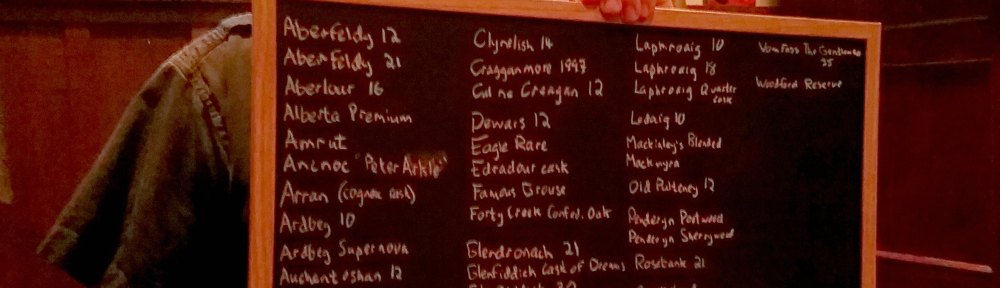 Aberfeldy 12
Aberfeldy 21
Aberlour 16
Alberta Premium
Amrut
Ancnoc "Peter Arkle"
Arran (cognac cask)
Ardbeg 10
Ardbeg Supernova
Auchentoshan 12
Clynelish 14
Cragganmore 1997
Cul na Creagan 12
Dewars 12
Eagle Rare
Edradour cask
Famous Grouse
Forty Creek Confed. Oak
Glendronach 21
Glenfiddich Cask of Dreams
Laphroaig 10
Laphroaig 18
Laphroaig Quarter
cask
Ledaig 10
Mackinlay's Blended
Mackmyra
Old Pulteney 12
Penderyn Portwood
Penderyn Sherrywood
Rosebank 21
Vom Fass The Gentleman
35
Woodford Reserve